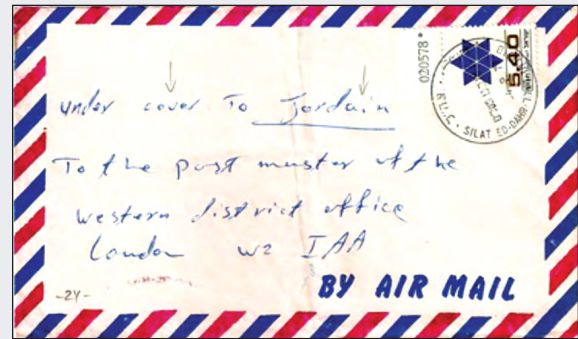 020578*
5.40
SILAT ED-DAHR
under cover To Jordain
To the post muster of the
western district office
London W2 IAA
BY AIR MAIL
-24-